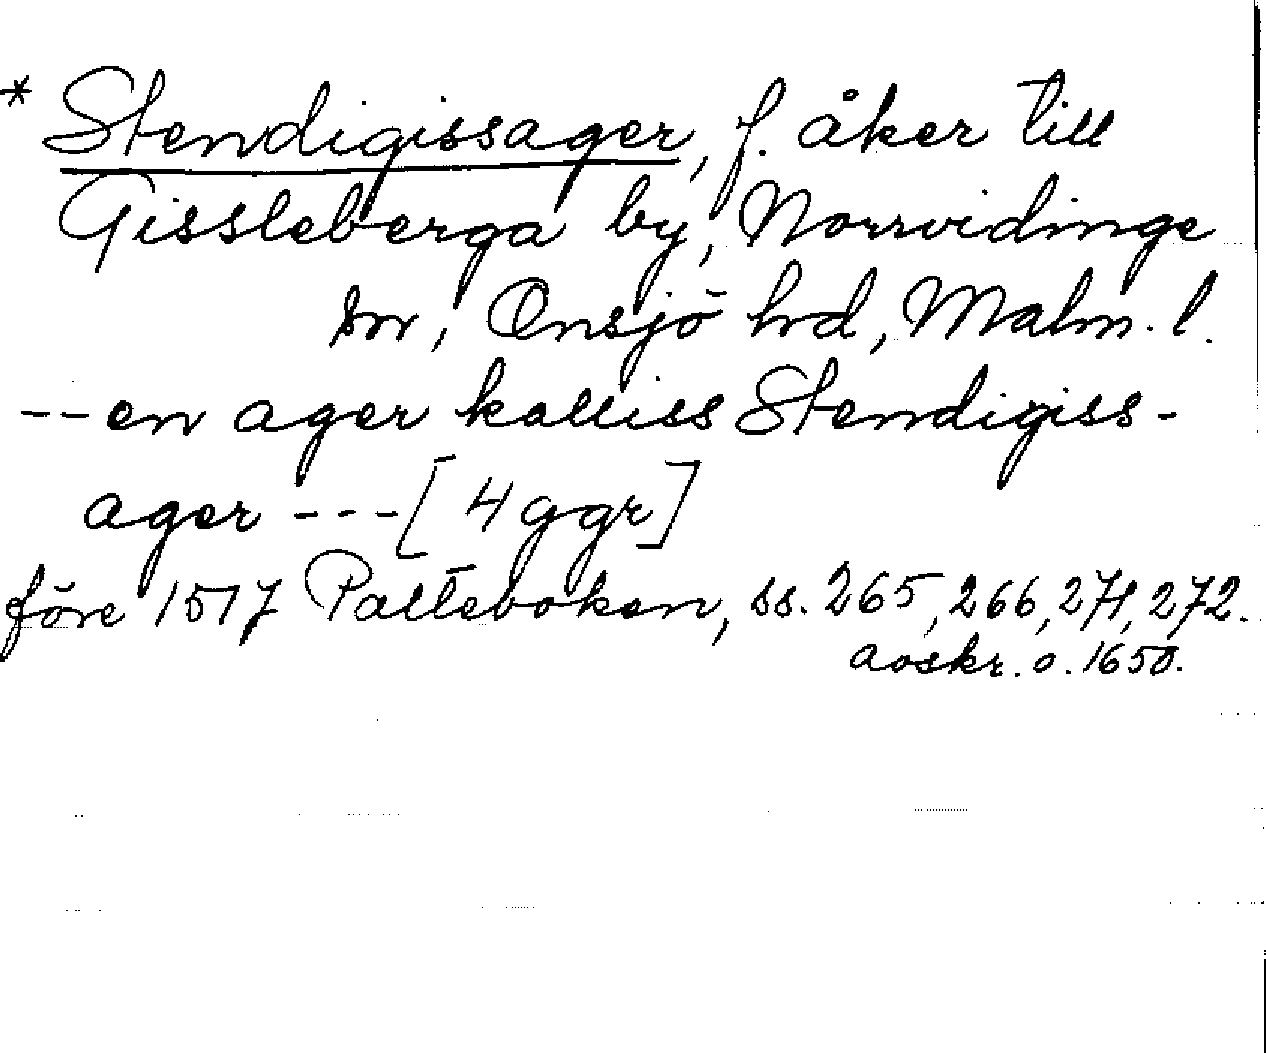 * Stendigissager, f. åker till
Gissleberga by, Norrvidinge
sn, Onsjö hd, Malm. l.
-- en ager kalliss Stendigiss-
ager --- [4 ggr]
före 1517 Palteboken, ss. 265, 266, 271, 272.
avskr. o. 1650.